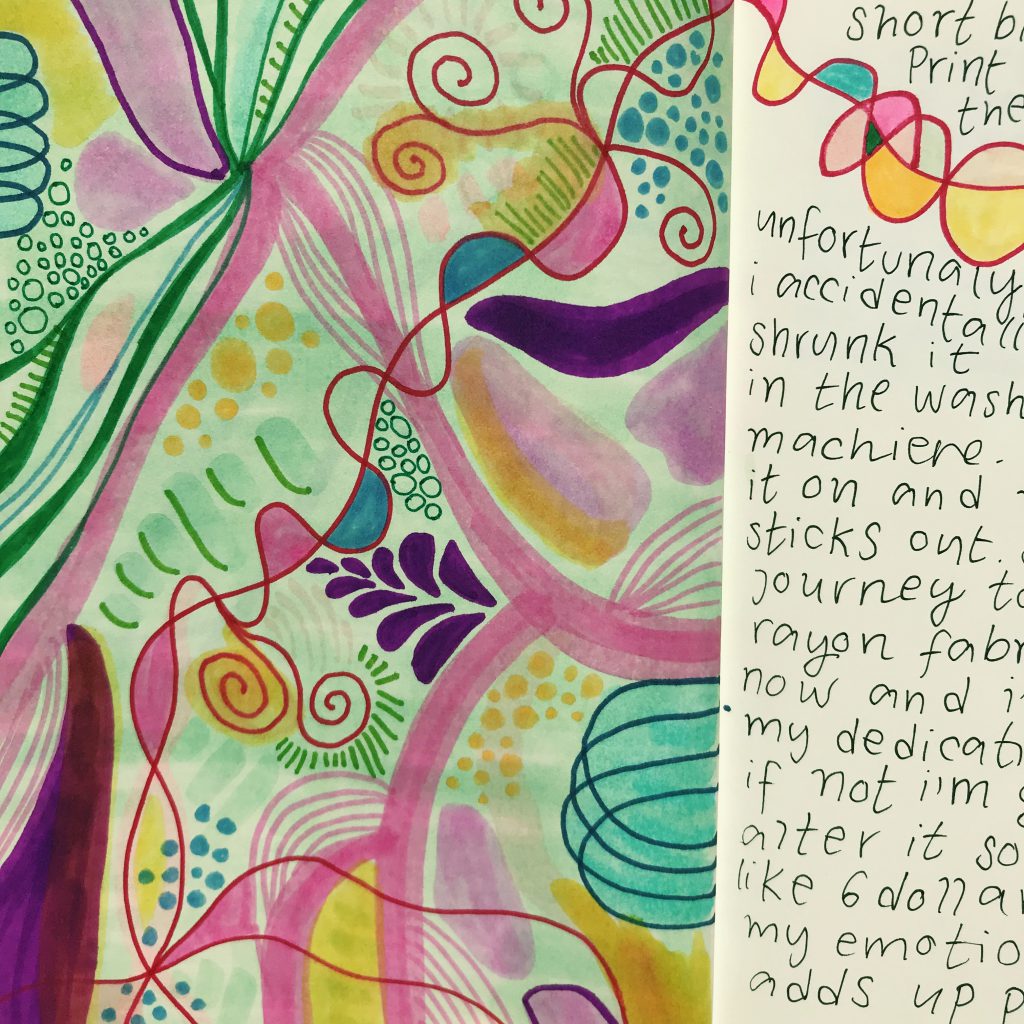 short b
Print
the
unfortunaly
i accidentall
shrunk it
in the wash
machiere.
it on and
sticks out.
journey to
rayon fabr
now and i
my dedicati
if not i'm g
alter it so
like 6 dollar
my emotio
adds up p